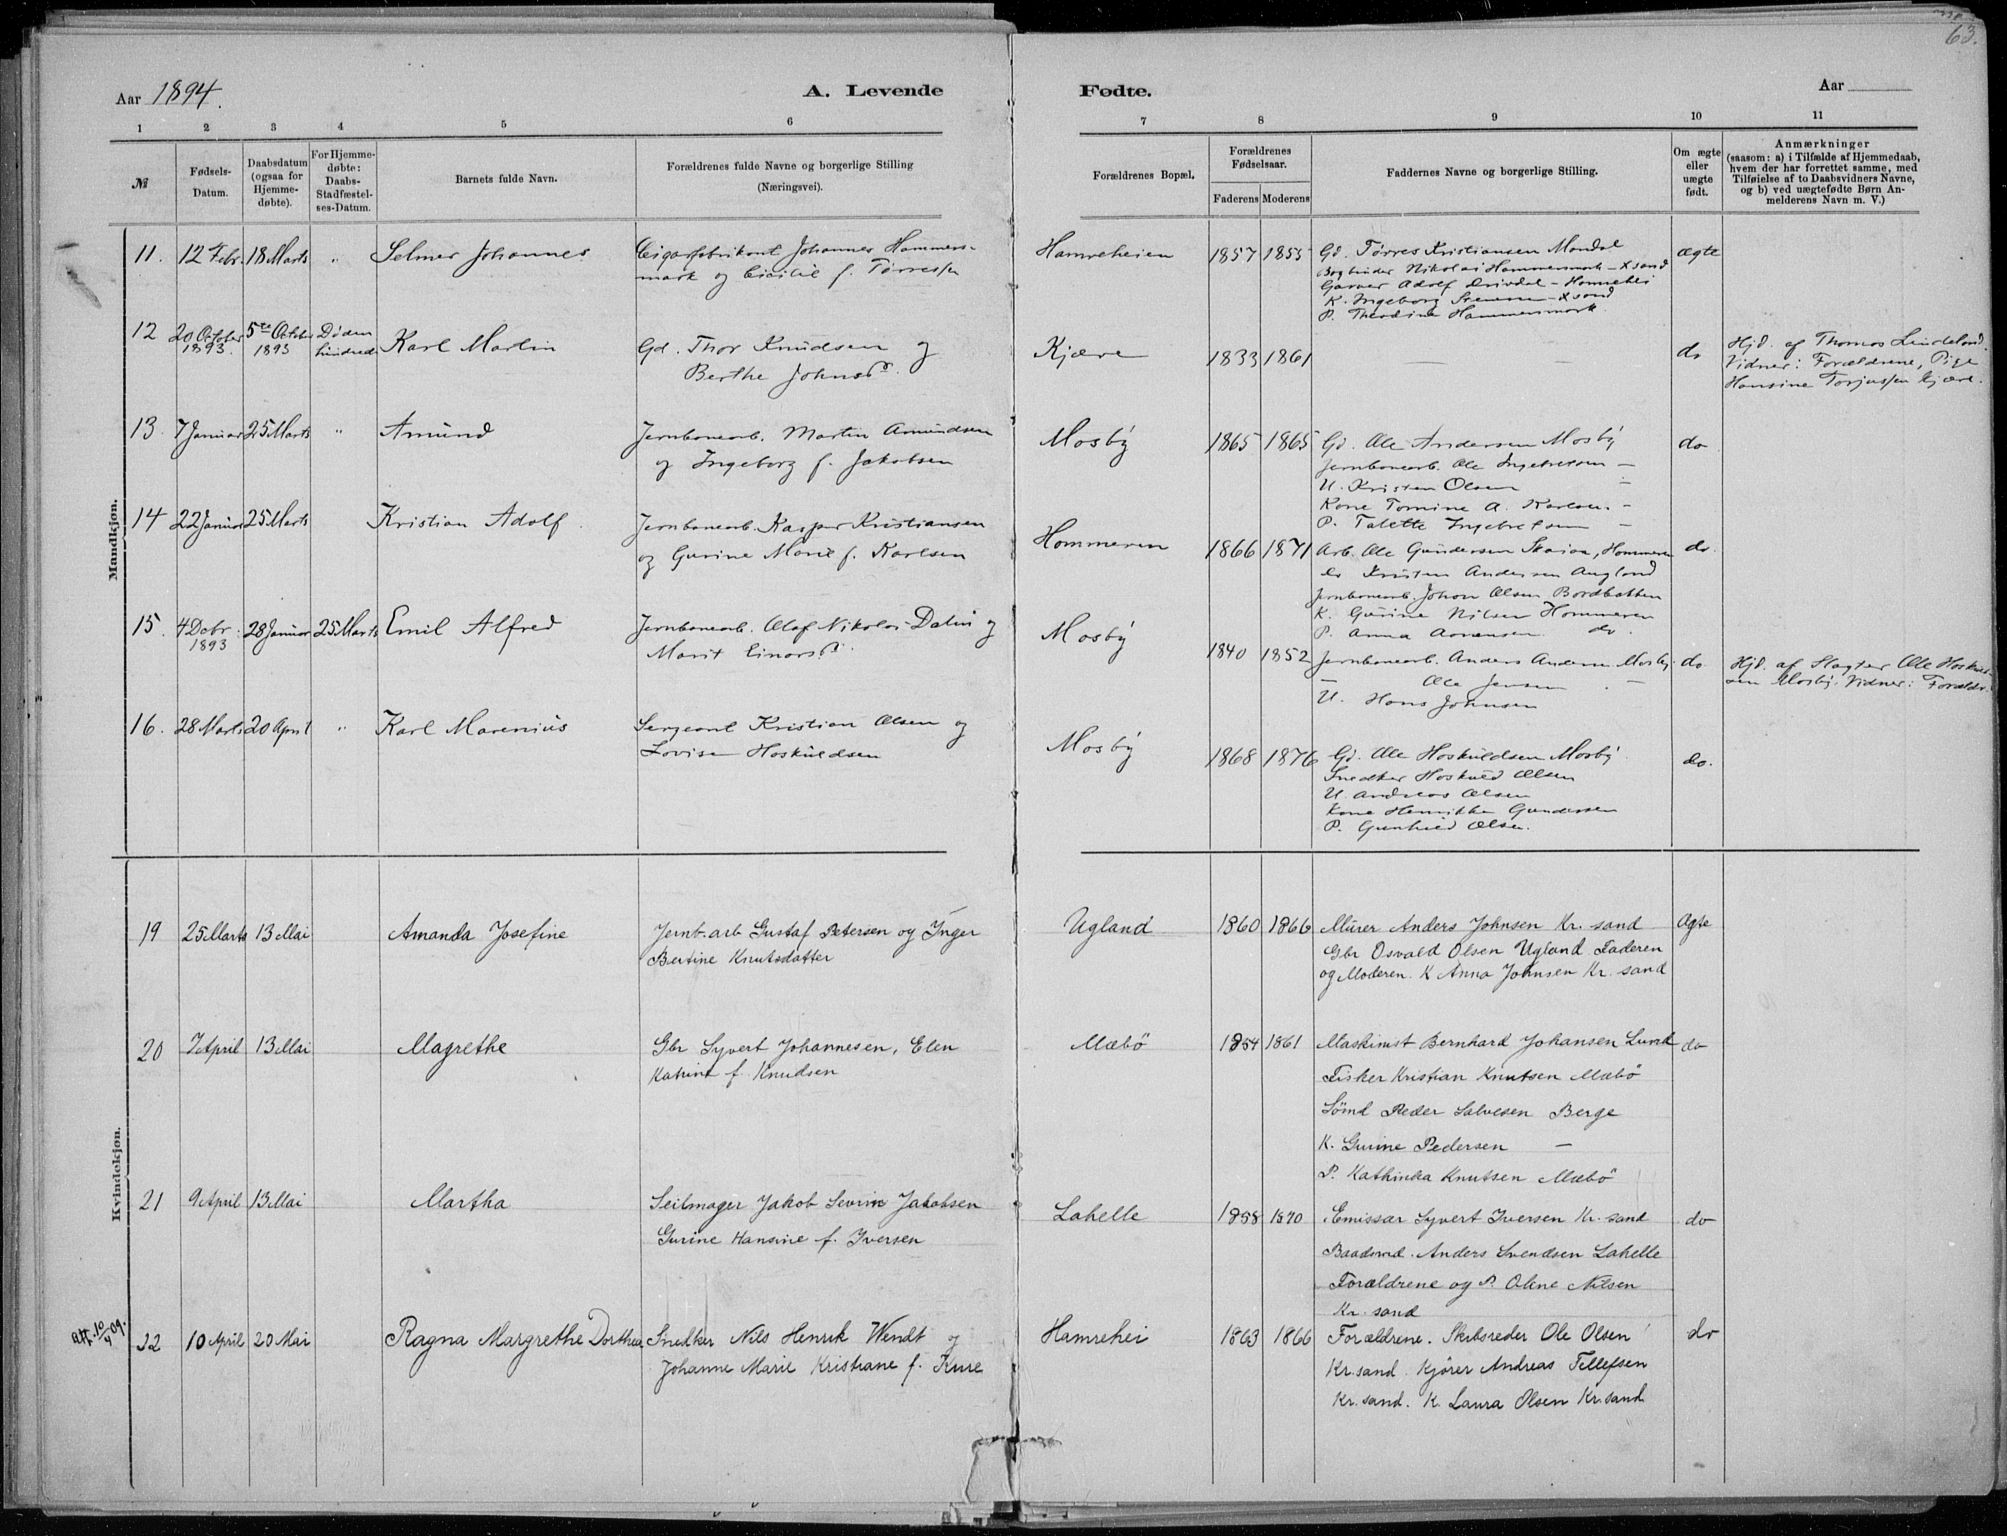 63.
Aar 1894.
A. Levende Fødte.
Aar
1 2 3 4 5 6 7 8 9 10 11
№
Fødsels-Datum.
Daabsdatum (ogsaa for Hjemme-døbte).
For Hjemme-døbte: Daabs-Stadfæstel-ses-Datum.
Barnets fulde Navn.
Forældrenes fulde Navne og borgerlige Stilling
(Næringsvei).
Forældrenes Bopæl.
Forældrenes Fødselsaar.
Faderens Moderens
Faddernes Navne og borgerlige Stilling.
Om ægte eller uægte født.
Anmærkninger
(saasom: a) i Tilfælde af Hjemmedaab,
hvem der har forrettet samme, med
Tilføielse af to Daabsvidners Navne,
og b) ved uægtefødte Børn An-
melderens Navn m. V.)
Mandkjøn.
11. 12 Febr. 18 Marts " Selmer Johannes
Cigarfabrikant Johannes Hammers-
mark og Cicilie f. Tørressen
Hamreheien 1857 1855
Gd. Tørres Kristiansen Mandal
Bogbinder Nikolai Hammersmark - Xsand
Garver Adolf Drivdal - Hamrehei
K. Ingeborg Svensen - Xsand
P. Theodine Hammersmark
ægte
12 20 October 1893. 5te October 1893 Døden hindrede Karl Martin
Gd. Thor Knudsen og
Berthe Johnsd.
Kjære 1833 1861 — — do
Hjd. af Thomas Lindeland.
Vidner: Forældrene, Pige
Hansine Torjussen Kjære.
13. 7 Januar 25 Marts " Amund
Jernbanearb. Martin Amundsen
og Ingeborg f. Jakobsen
Mosby 1865 1865
Gd. Ole Andersen Mosby
Jernbanearb. Ole Ingebretsen —
U. Kristen Olsen —
Kone Tomine A. Karlsen. -
P. Talette Ingebretsen —
do
14 22 Januar 25 Marts Kristian Adolf.
Jernbanearb. Kasper Kristiansen
og Gurine Marie f. Karlsen
Hommeren 1866 1871
Arb. Ole Gundersen Skaiaa, Hommeren
do Kristen Andersen Augland
Jernbanearb. Johan Olsen Bordbakken
K. Gurine Nilsen Hommeren
P. Anna Aanensen do.
do.
15. 4 Debr. 1893 28 Januar 25 Marts Emil Alfred
Jernbanearb. Olaf Nikolai Dalin og
Marit Einarsd.
Mosby 1840 1852
Jernbanearb. Anders Andersen Mosby.
— Ole Jensen —
U. Hans Johnsen
do
Hjd. af Slagter Ole Hoskuld-
sen Mosby. Vidner: Forældr.
16. 28 Marts 20 April " Karl Marenius
Sergeant Kristian Olsen og
Lovise Hoskuldsen
Mosby 1868 1876
Gd. Ole Hoskuldsen Mosby.
Snedker Hoskuld Olsen
U. Andreas Olsen
Kone Henrikke Gundersen
P. Gunhild Olsen.
do.
Kvindekjøn.
19 25 Marts 13 Mai Amanda Josefine
Jernb.arb Gustaf Petersen og Inger
Bertine Knutsdatter
Ugland 1860 1866
Murer Anders Johnsen Kr. sand
Gbr Osvald Olsen Ugland Faderen
og Moderen. K Anna Johnsen Kr. sand
Ægte
20 7 April 13 Mai Magrethe
Gbr Syvert Johannesen, Elen
Katrine f. Knudsen
Mæbö 1854 1861
Maskinist Bernhard Johansen Lund
Fisker Kristian Knutsen Mæbö
Sömd Peder Salvesen Berge
K. Gurine Pedersen —
P. Kathinka Knutsen Mæbö
do
21 9 April 13 Mai Martha
Seilmager Jakob Sevrin Jakobsen
Gurine Hansine f. Iversen
Lahelle 1858 1870
Emissær Syvert Iversen Kr. sand
Baadsmd. Anders Svendsen Lahelle
Forældrene og P. Oline Nilsen
Kr. sand
do
Att. 10/4 09. 22 10 April 20 Mai Ragna Margrethe Dorthea
Snedker Nils Henrik Wendt og
Johanne Marie Kristiane f. Kure
Hamrehei 1863 1866
Forældrene. Skibsreder Ole Olsen
Kr.sand. Kjörer Andreas Tellefsen
Kr. sand. K. Laura Olsen Kr. sand
do